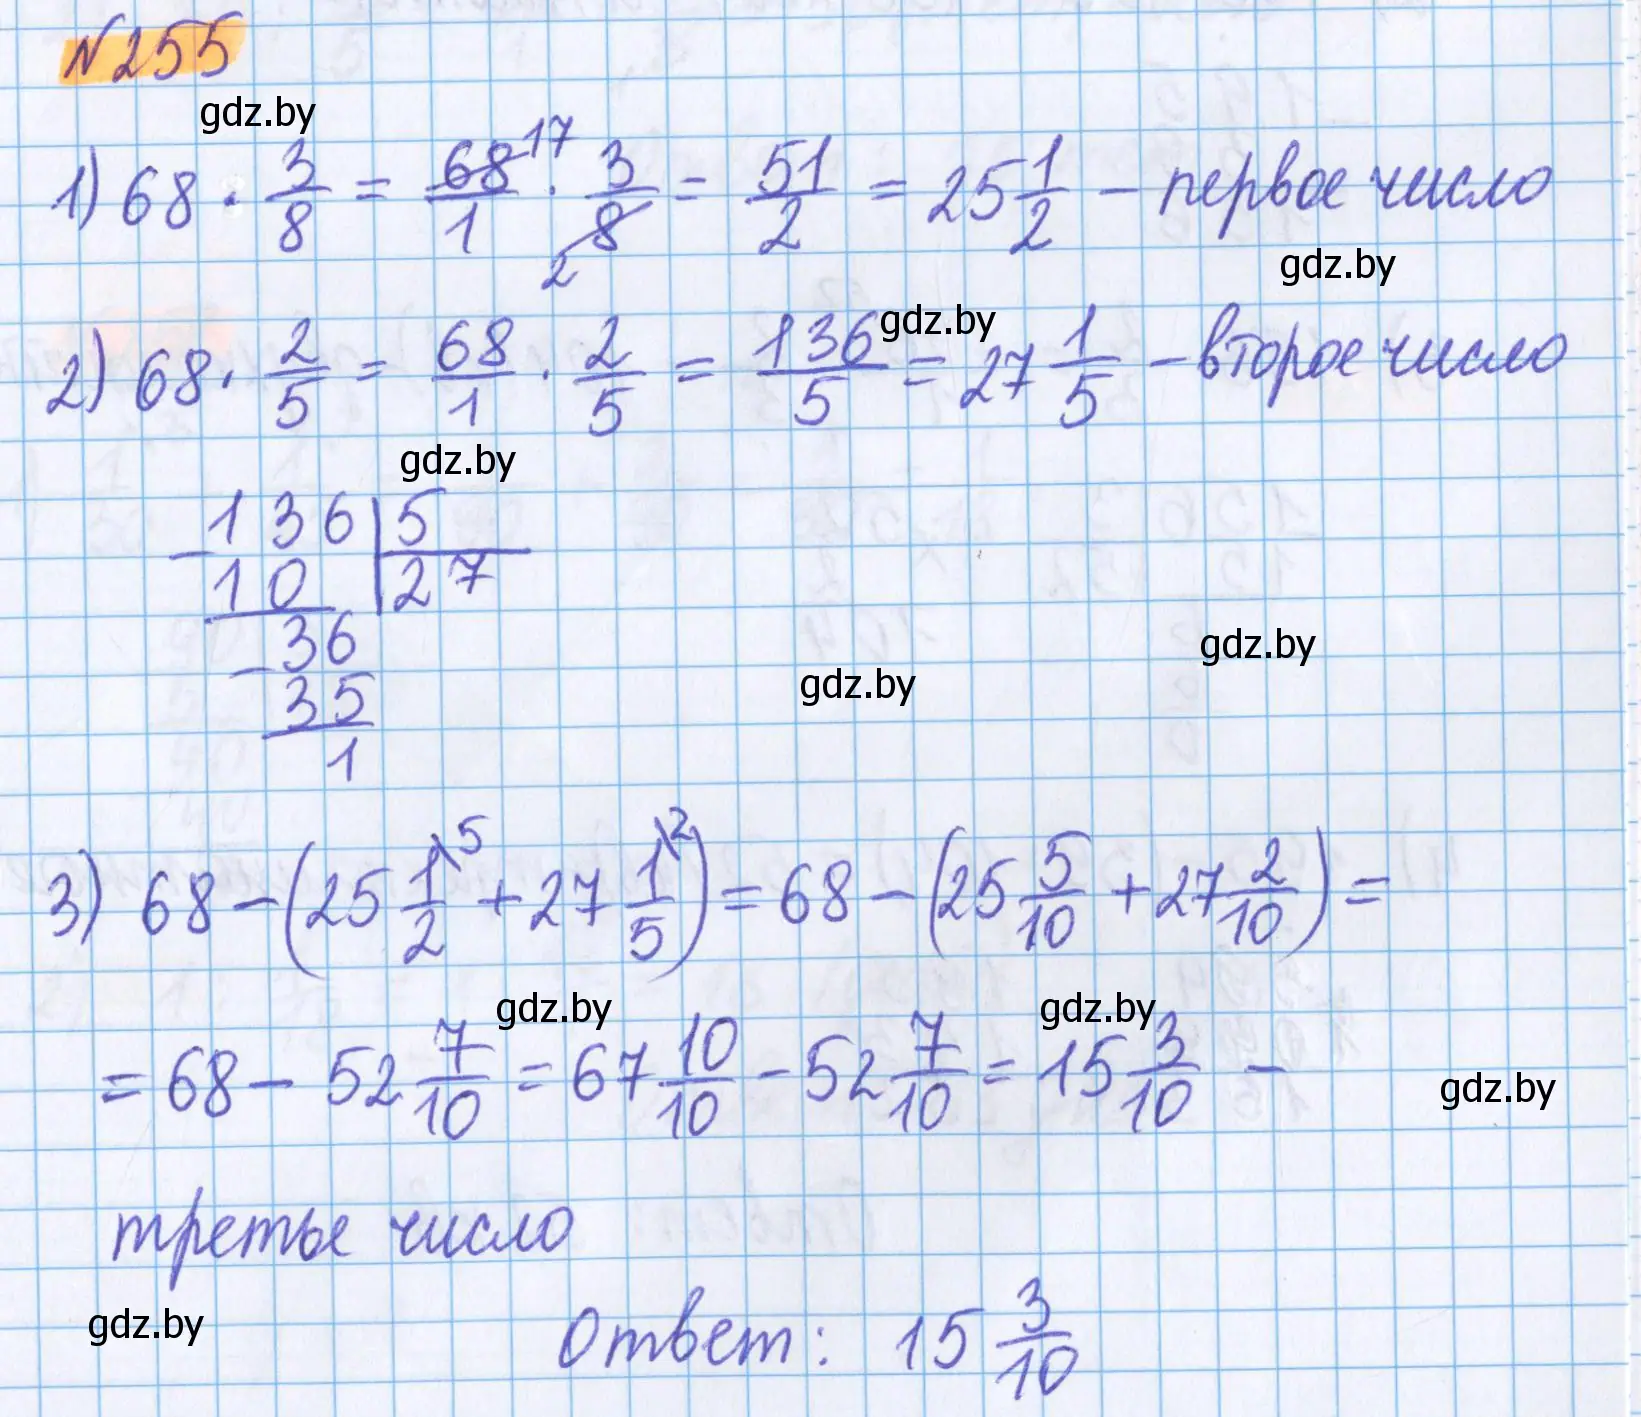 N255
gdz.by
1) 68 · 3/8 = 68/1 17 · 3/8 2 = 51/2 = 25 1/2 – первое число
gdz.by
gdz.by
2) 68 · 2/5 = 68/1 · 2/5 = 136/5 = 27 1/5 – второе число
gdz.by
– 136 | 5
10 | 27
– 36
35
1
gdz.by
gdz.by
3) 68 – (25 1/2 \5 + 27 1/5 \2) = 68 – (25 5/10 + 27 2/10) =
gdz.by gdz.by
= 68 – 52 7/10 = 67 10/10 – 52 7/10 = 15 3/10 –
gdz.by
третье число
gdz.by
Ответ: 15 3/10